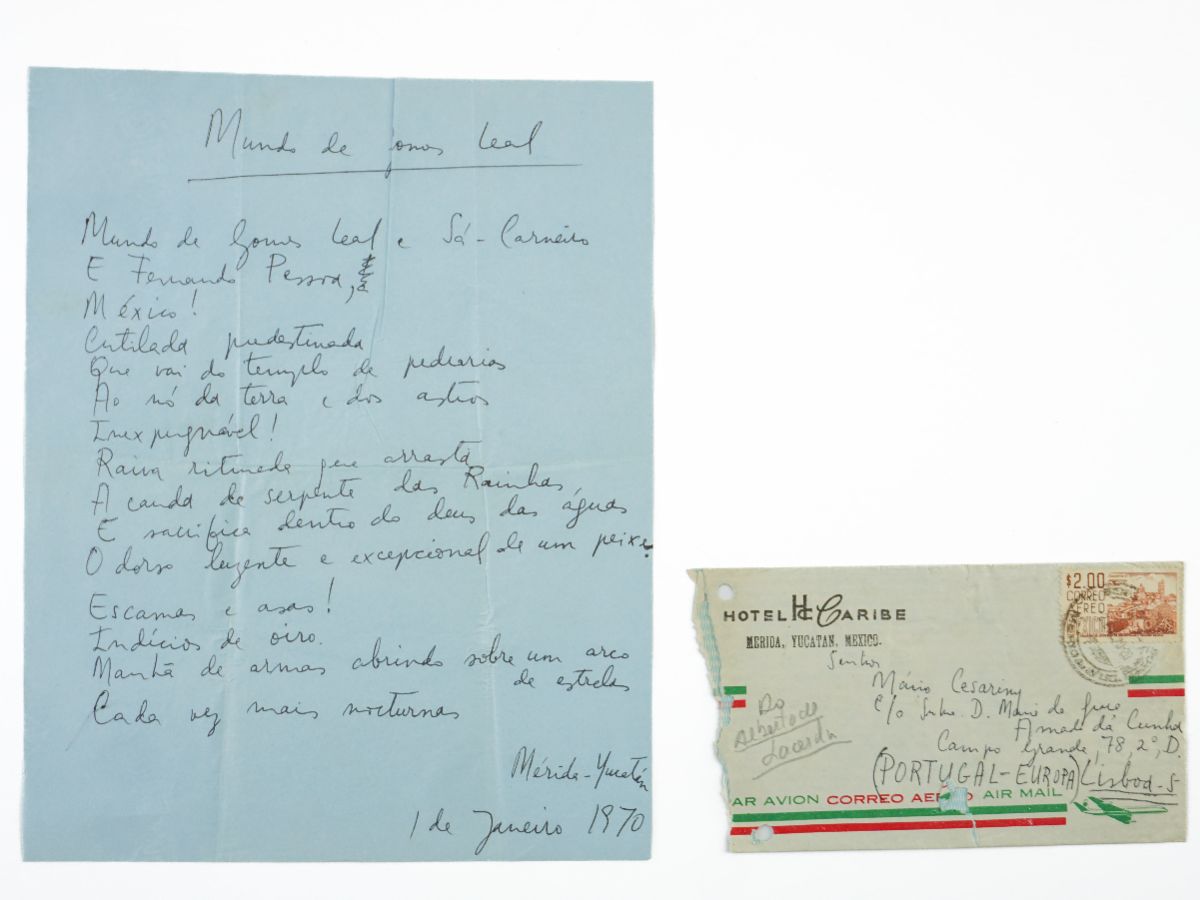 Mundo de Gomes Leal
Mundo de Gomes Leal e Sá-Carneiro
E Fernando Pessoa,
México!
Cutilada predestinada
Que vai do templo de pedrarias
Ao nó da terra e dos astros
Inexpugnável!
Raiva ritmada que arrasta
A cauda de serpente das Rainhas,
E sacrifica dentro do deus das águas
O dorso luzente e excepcional de um peixe.
Escamas e asas!
Indícios de oiro.
Manhã de armas abrindo sobre um arco
de estrelas
Cada vez mais nocturnas
Mérida-Yucatán
1 de Janeiro 1970
HOTEL HC CARIBE
MERIDA, YUCATAN, MEXICO.
$2.00
CORREO
AEREO
Senhor
Mário Cesariny
c/o D. Maria de
Armada Cunha
Campo Grande, 78, 2º, D.
(PORTUGAL-EUROPA) Lisboa-5
Do
Alberto de
Lacerda
PAR AVION CORREO AEREO AIR MAIL